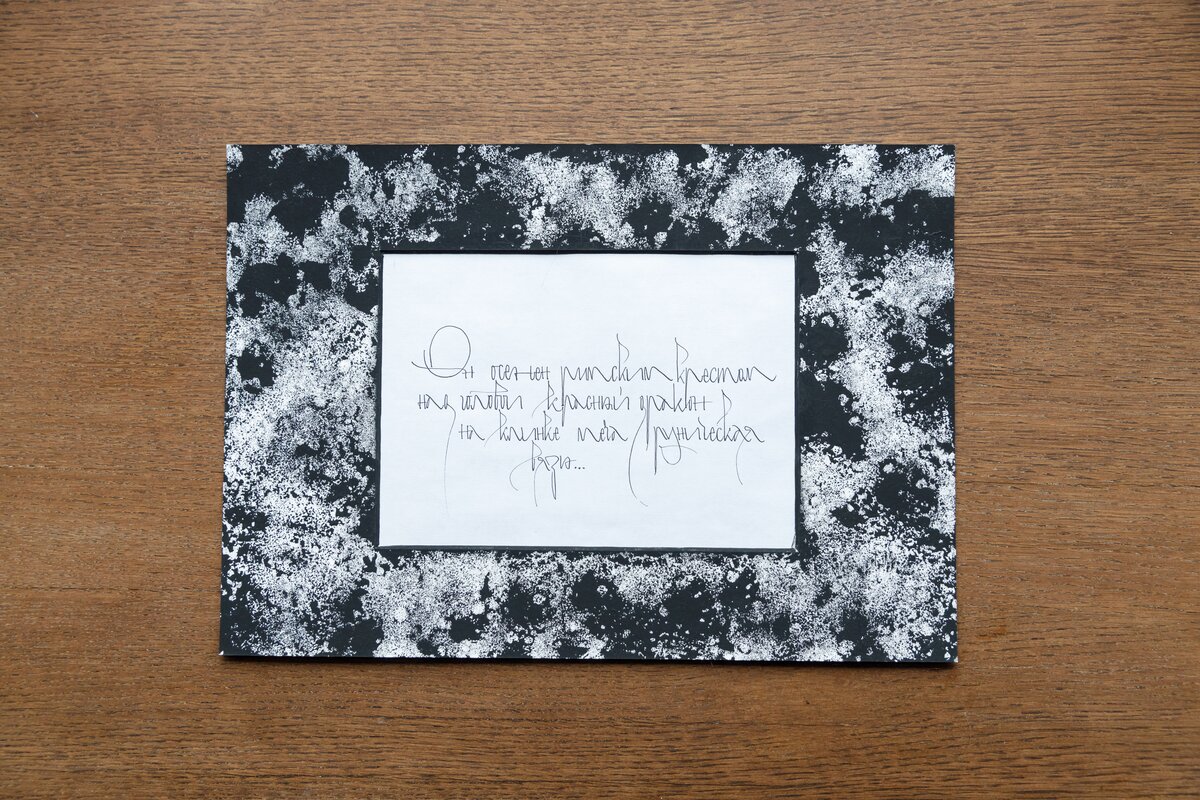 Он осенен римским крестом
над головой красный дракон
на клинке меча руническая
вязь...